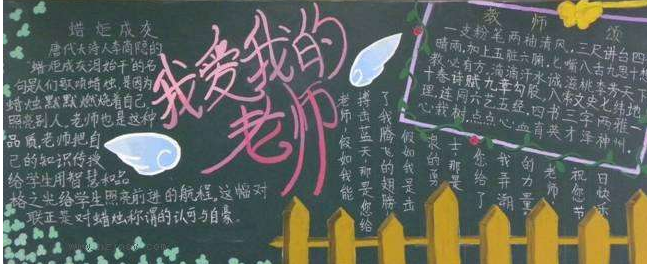 蜡炬成灰
唐代大诗人李商隐的
蜡炬成灰泪始干的名
句是人们歌颂蜡烛,是因为
蜡烛默默燃烧着自己,
照亮别人。老师也是这种
品质老师把自
己的知识传授
给学生用智慧和品
格之光给学生照亮前进的航程。这幅对
联正是对蜡烛称谓的认可与自豪。
我爱我的
老师
教师颂
一支粉笔两袖清风,三尺讲台四
晴雨,加上五脏六腑,七嘴八舌九思十想
教必有方,滴滴汗水诚滋桃李芳天下
十卷诗赋九章勾股,八索文史七纬地
理连同六艺五经,四书三字两雅一
心我树,点点心血育英才泽神州。
老师,假如我能
搏击蓝天,那是您给
了我腾飞的翅膀;
假如我是击
浪的勇
士,那是
您给了
我弄潮
的力量。
老师!
祝您节
日快乐